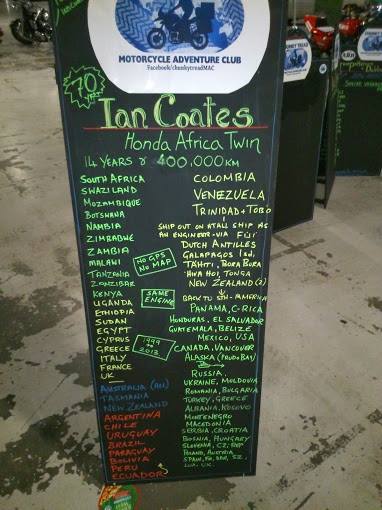 MOTORCYCLE ADVENTURE CLUB
Facebook/chunkytreadMAC
70
YRS
Ian Coates
Honda Africa Twin
14 YEARS & 400,000KM
SOUTH AFRICA
SWAZILAND
MOZAMBIQUE
BOTSWANA
NAMBIA
ZIMBABWE
ZAMBIA
MALAWI
TANZANIA
ZANZIBAR
KENYA
UGANDA
ETHIOPIA
SUDAN
EGYPT
CYPRUS
GREECE
ITALY
FRANCE
UK
AUSTRALIA (ALL)
TASMANIA
NEW ZEALAND
ARGENTINA
CHILE
URUGUAY
BRAZIL
PARAGUAY
BOLIVIA
PERU
ECUADOR
NO GPS
NO MAP
SAME
ENGINE
1999
TO
2013
COLOMBIA
VENEZUELA
TRINIDAD+TOBO
SHIP OUT ON TALL SHIP AS
AN ENGINEER-VIA FIJI
DUTCH ANTILLES
GALAPAGOS Isd,
TAHITI, BORA BORA
HWA HOI, TONGA
NEW ZEALAND (2)
BACK TO STH-AMERICA
PANAMA, C-RICA
HONDURAS, EL SALVADOR
GUATEMALA, BELIZE
MEXICO, USA
CANADA, VANCOUVER
ALASKA (PRUDO BAY)
RUSSIA,
UKRAINE, MOLDOVIA
ROMANIA, BULGARIA
TURKEY, GREECE
ALBANIA, KOSEVO
MONTENEGRO
MACEDONIA
SERBIA, CROATIA
BOSNIA, HUNGARY
SLOVENIA, CZ. REP
POLAND, AUSTRIA
LUX, UK.